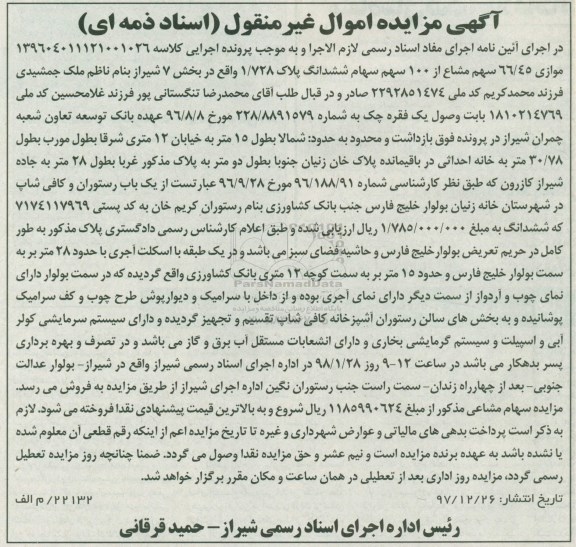 آگهی مزایده اموال غیر منقول (اسناد ذمه ای)
در اجرای آئین نامه اجرای مفاد اسناد رسمی لازم الاجرا و به موجب پرونده اجرایی کلاسه ۱۳۹۶۰۴۰۱۱۱۲۱۰۰۱۰۲۶
موازی ۶۶/۴۵ سهم مشاع از ۱۰۰ سهم سهام ششدانگ پلاک ۱/۷۲۸ واقع در بخش ۷ شیراز بنام ناظم ملک جمشیدی
فرزند محمدکریم کد ملی ۲۲۹۲۸۵۱۴۷۴ صادر و در قبال طلب آقای محمدرضا تنگستانی پور فرزند غلامحسین کد ملی
۱۸۱۰۲۱۴۷۶۹ بابت وصول یک فقره چک به شماره ۲۲۸/۸۸۹۱۵۷۹ مورخ ۹۶/۸/۸ عهده بانک توسعه تعاون شعبه
چمران شیراز در پرونده فوق بازداشت و محدود به حدود: شمالا بطول ۱۵ متر به خیابان ۱۲ متری شرقا بطول مورب بطول
۳۰/۷۸ متر به خانه احداثی در باقیمانده پلاک خان زنیان جنوبا بطول دو متر به پلاک مذکور غربا بطول ۲۸ متر به جاده
شیراز کازرون که طبق نظر کارشناسی شماره ۹۶/۱۸۸/۹۱ مورخ ۹۶/۹/۲۸ عبارتست از یک باب رستوران و کافی شاپ
در شهرستان خانه زنیان بولوار خلیج فارس جنب بانک کشاورزی بنام رستوران کریم خان به کد پستی ۷۱۷۴۱۱۷۹۶۹
که ششدانگ به مبلغ ۱/۷۸۵/۰۰۰/۰۰۰ ریال ارزیابی شده و طبق اعلام کارشناس رسمی دادگستری پلاک مذکور به طور
کامل در حریم تعریض بولوار خلیج فارس و حاشیه فضای سبز می باشد و در یک طبقه با اسکلت آجری با حدود ۲۸ متر بر به
سمت بولوار خلیج فارس و حدود ۱۵ متر بر به سمت کوچه ۱۲ متری بانک کشاورزی واقع گردیده که در سمت بولوار دارای
نمای چوب و آردواز از سمت دیگر دارای نمای آجری بوده و از داخل با سرامیک و دیوارپوش طرح چوب و کف سرامیک
پوشانیده و به بخش های سالن رستوران آشپزخانه کافی شاپ تقسیم و تجهیز گردیده و دارای سیستم سرمایشی کولر
آبی و اسپیلت و سیستم گرمایشی بخاری و دارای انشعابات مستقل آب برق و گاز می باشد و در تصرف و بهره برداری
پسر بدهکار می باشد در ساعت ۱۲-۹ روز ۹۸/۱/۲۸ در اداره اجرای اسناد رسمی شیراز واقع در شیراز- بولوار عدالت
جنوبی- بعد از چهارراه زندان- سمت راست جنب رستوران نگین اداره اجرای شیراز از طریق مزایده به فروش می رسد.
مزایده سهام مشاعی مذکور از مبلغ ۱۱۸۵۹۹۰۶۲۴ ریال شروع و به بالاترین قیمت پیشنهادی نقدا فروخته می شود. لازم
به ذکر است پرداخت بدهی های مالیاتی و عوارض شهرداری و غیره تا تاریخ مزایده اعم از اینکه رقم قطعی آن معلوم شده
یا نشده باشد به عهده برنده مزایده است و نیم عشر و حق مزایده نقدا وصول می گردد. ضمنا چنانچه روز مزایده تعطیل
رسمی گردد، مزایده روز اداری بعد از تعطیلی در همان ساعت و مکان مقرر برگزار خواهد شد.
تاریخ انتشار: ۹۷/۱۲/۲۶
۲۲۱۳۲/م الف
رئیس اداره اجرای اسناد رسمی شیراز- حمید قرقانی